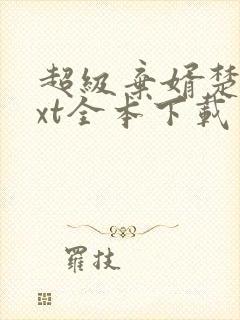 超級棄婿楚
xt全本下載
羅技